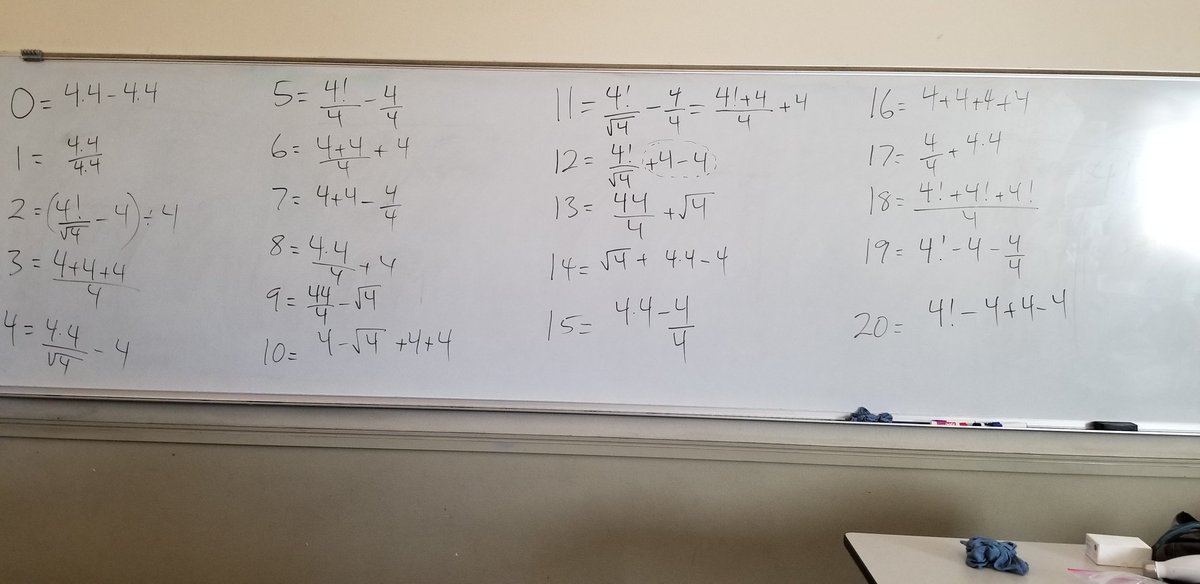 0 = 4·4 - 4·4
1 = 4·4 / 4·4
2 = (4! / √4 - 4) ÷ 4
3 = 4+4+4 / 4
4 = 4·4 / √4 - 4
5 = 4! / 4 - 4 / 4
6 = 4+4 / 4 + 4
7 = 4+4 - 4 / 4
8 = 4·4 / 4 + 4
9 = 44 / 4 - √4
10 = 4 - √4 + 4 + 4
11 = 4! / √4 - 4 / 4 = 4! + 4 / 4 + 4
12 = 4! / √4 + 4 - 4
13 = 44 / 4 + √4
14 = √4 + 4·4 - 4
15 = 4·4 - 4 / 4
16 = 4+4+4+4
17 = 4 / 4 + 4·4
18 = 4! + 4! + 4! / 4
19 = 4! - 4 - 4 / 4
20 = 4! - 4 + 4 - 4